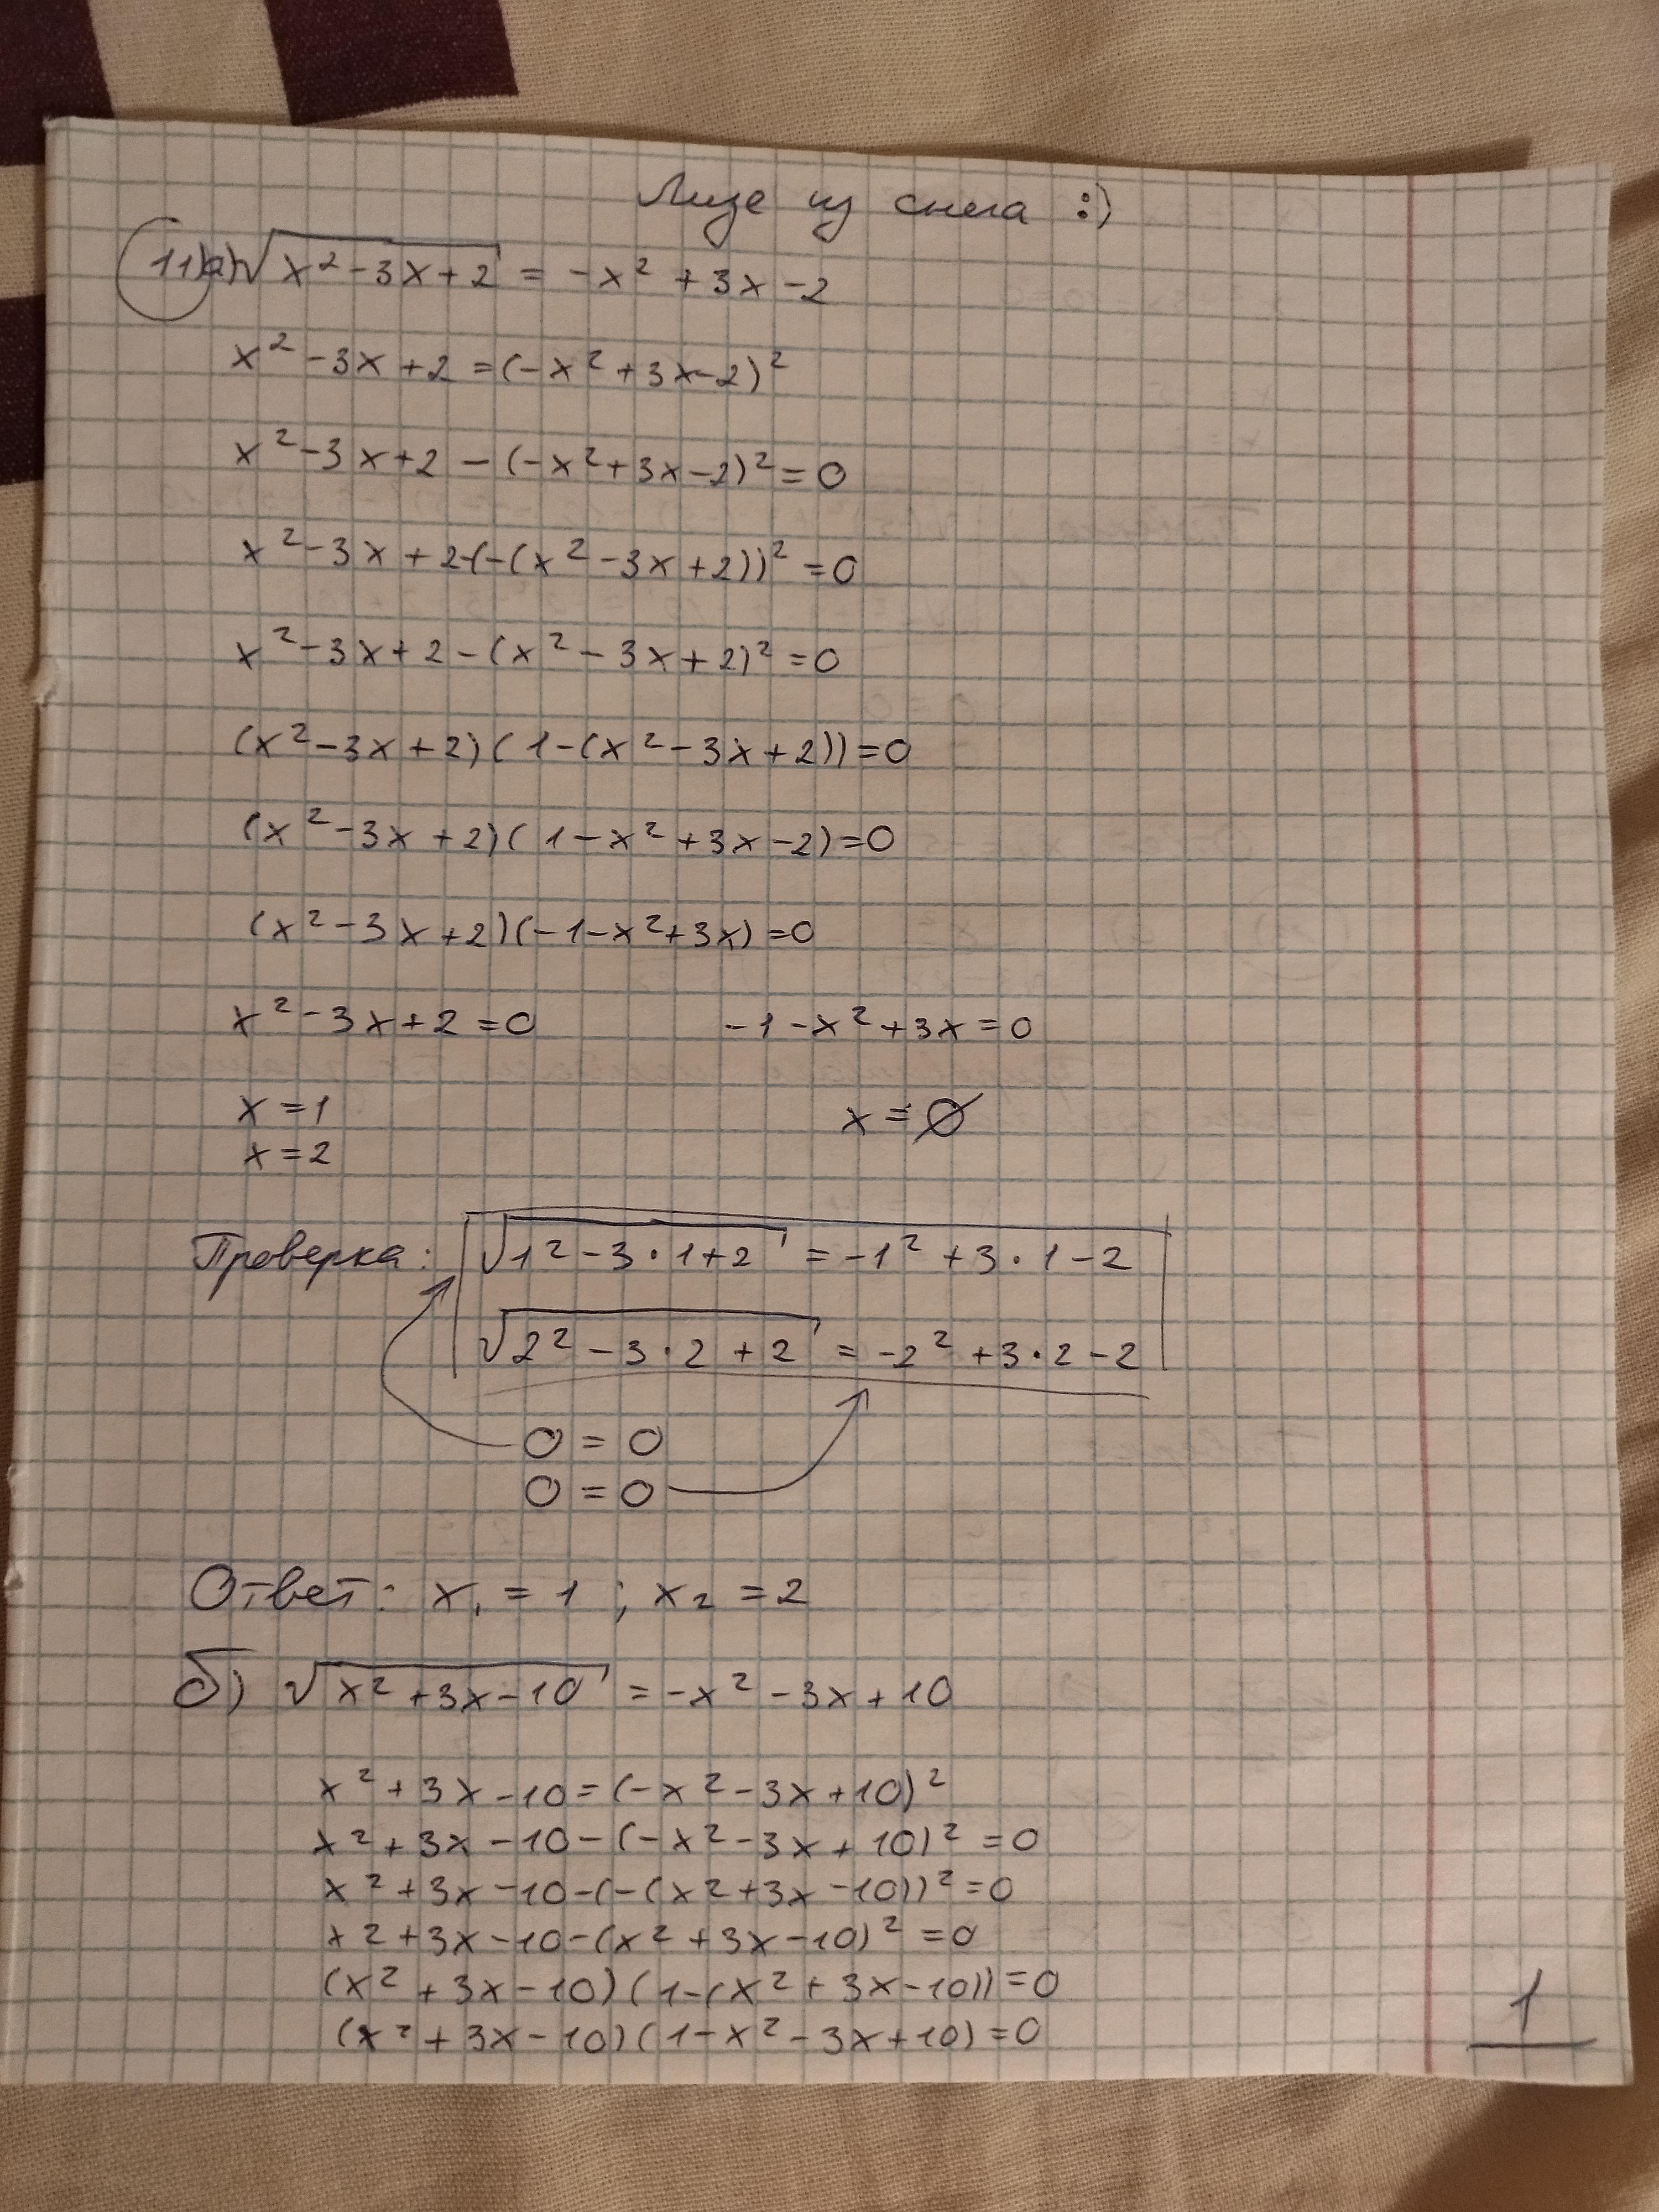 Лизе из снега :)
11) а) √(x² - 3x + 2) = -x² + 3x - 2
x² - 3x + 2 = (-x² + 3x - 2)²
x² - 3x + 2 - (-x² + 3x - 2)² = 0
x² - 3x + 2 - (-(x² - 3x + 2))² = 0
x² - 3x + 2 - (x² - 3x + 2)² = 0
(x² - 3x + 2)(1 - (x² - 3x + 2)) = 0
(x² - 3x + 2)(1 - x² + 3x - 2) = 0
(x² - 3x + 2)(-1 - x² + 3x) = 0
x² - 3x + 2 = 0 -1 - x² + 3x = 0
x = 1 x = ∅
x = 2
Проверка: √(1² - 3·1 + 2) = -1² + 3·1 - 2
√(2² - 3·2 + 2) = -2² + 3·2 - 2
0 = 0
0 = 0
Ответ: x₁ = 1 ; x₂ = 2
б) √(x² + 3x - 10) = -x² - 3x + 10
x² + 3x - 10 = (-x² - 3x + 10)²
x² + 3x - 10 - (-x² - 3x + 10)² = 0
x² + 3x - 10 - (-(x² + 3x - 10))² = 0
x² + 3x - 10 - (x² + 3x - 10)² = 0
(x² + 3x - 10)(1 - (x² + 3x - 10)) = 0
(x² + 3x - 10)(1 - x² - 3x + 10) = 0
1